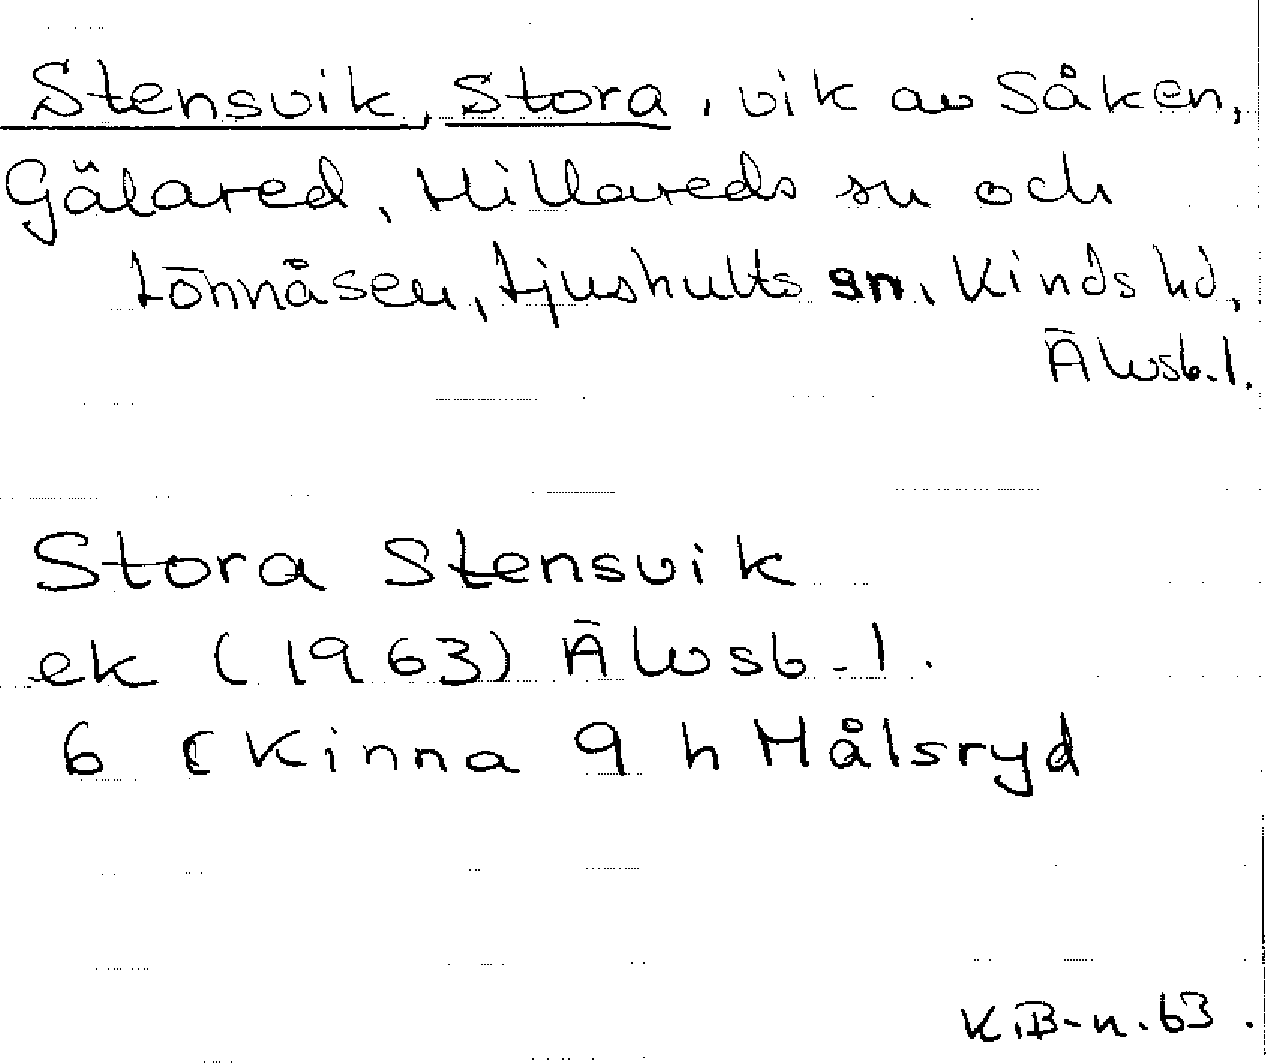 Stensvik, Stora, vik av Såken,
Gälared, Hillareds sn och
Lönnåsen, Ljushults sn, Kinds hd,
Älvsb. l.
Stora Stensvik
ek (1963) Älvsb. l.
6 C Kinna 9 h Målsryd
K.B-n. 63.